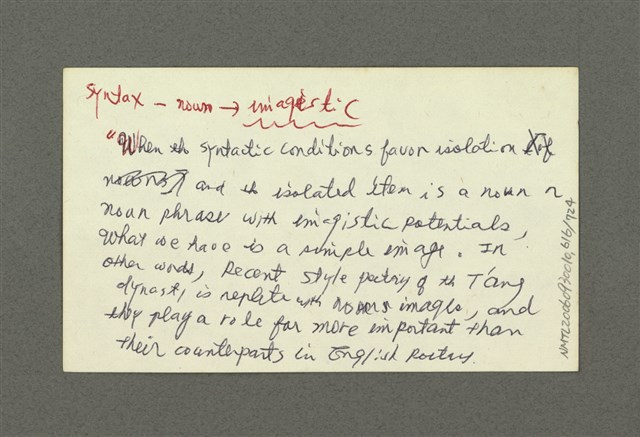 Syntax – noun → imagistic
"When the syntactic conditions favor isolation
and the isolated item is a noun or
noun phrase with imagistic potentials,
what we have is a simple image. In
other words, Recent Style poetry of the T'ang
dynasty is replete with images, and
they play a role far more important than
their counterparts in English Poetry.
NMTL20060930010,616/724